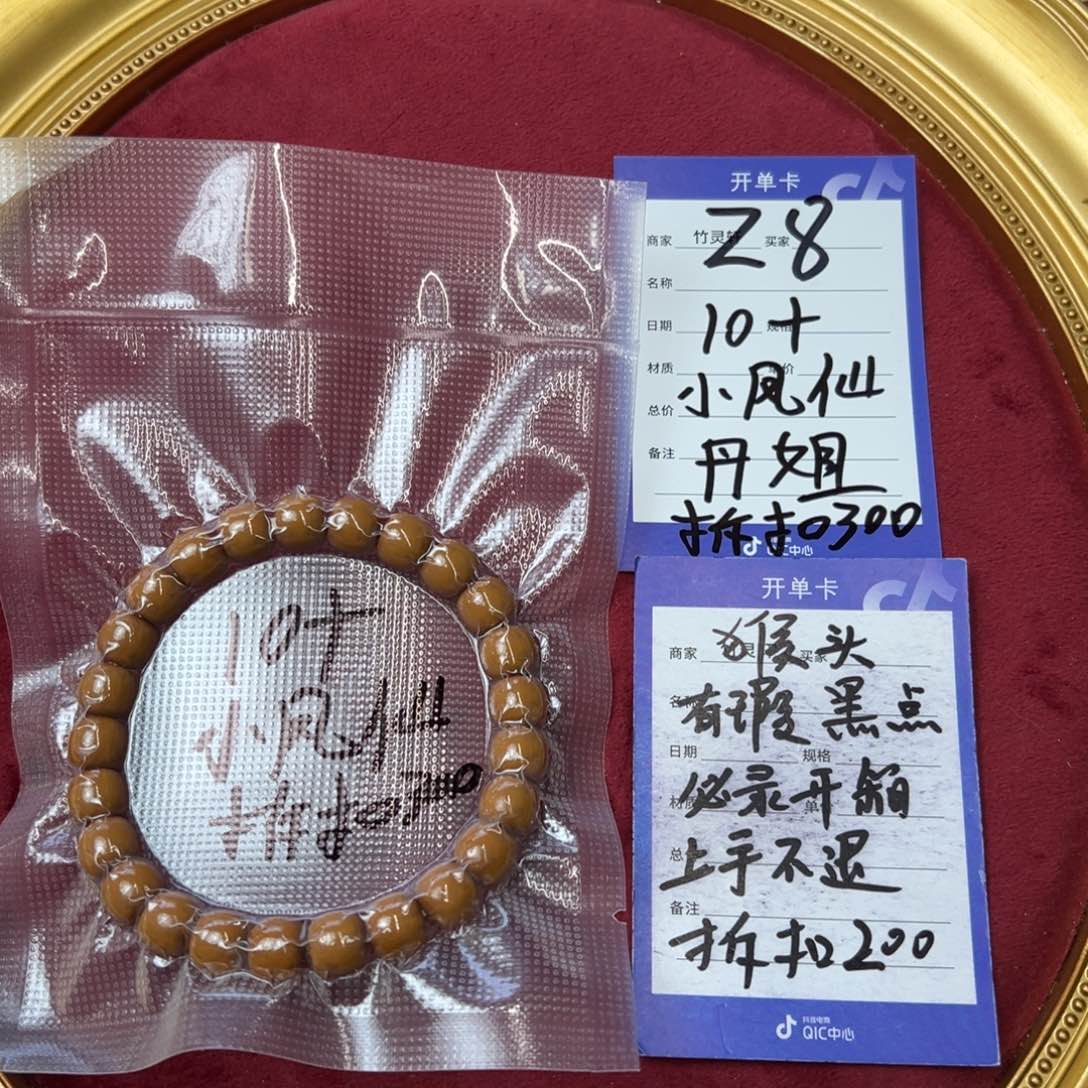 10+
小凤仙
拆扣300
开单卡
商家 竹灵轩 买家
Z8
名称
日期 规格
10+
材质
小凤仙
总价
备注
丹姐
拆扣300
QIC中心
开单卡
商家 买家
猴头
有瑕 黑点
日期 规格
必录开箱
上手不退
备注
拆扣200
抖音电商
QIC中心